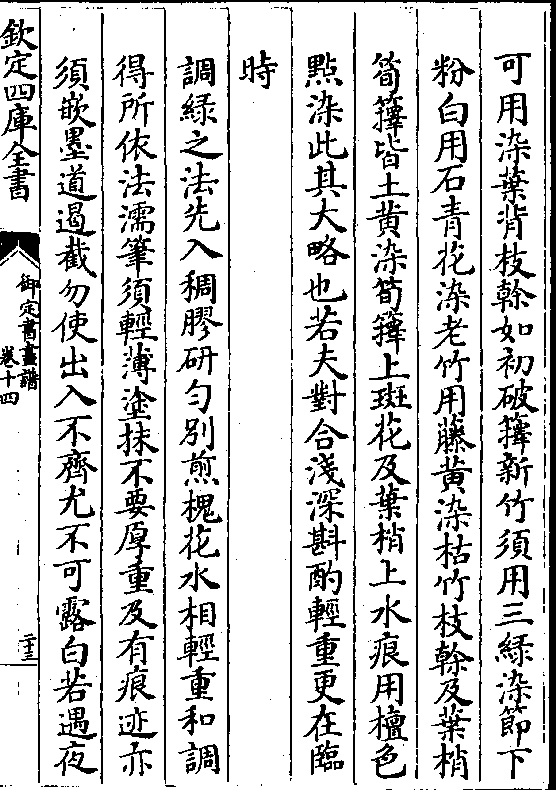 可用染葉背枝榦如初破籜新竹須用三綠染節下
粉白用石青花染老竹用藤黄染枯竹枝榦及葉梢
筍籜皆土黄染筍籜上斑花及葉梢上水痕用檀色
點染此其大略也若夫對合淺深斟酌輕重更在臨
時
調綠之法先入稠膠研勻别煎槐花水相輕重和調
得所依法濡筆須輕薄塗抹不要厚重及有痕迹亦
須嵌墨道遏截勿使出入不齊尤不可露白若遇夜
欽定四庫全書
御定書畫譜
卷十四
二十三